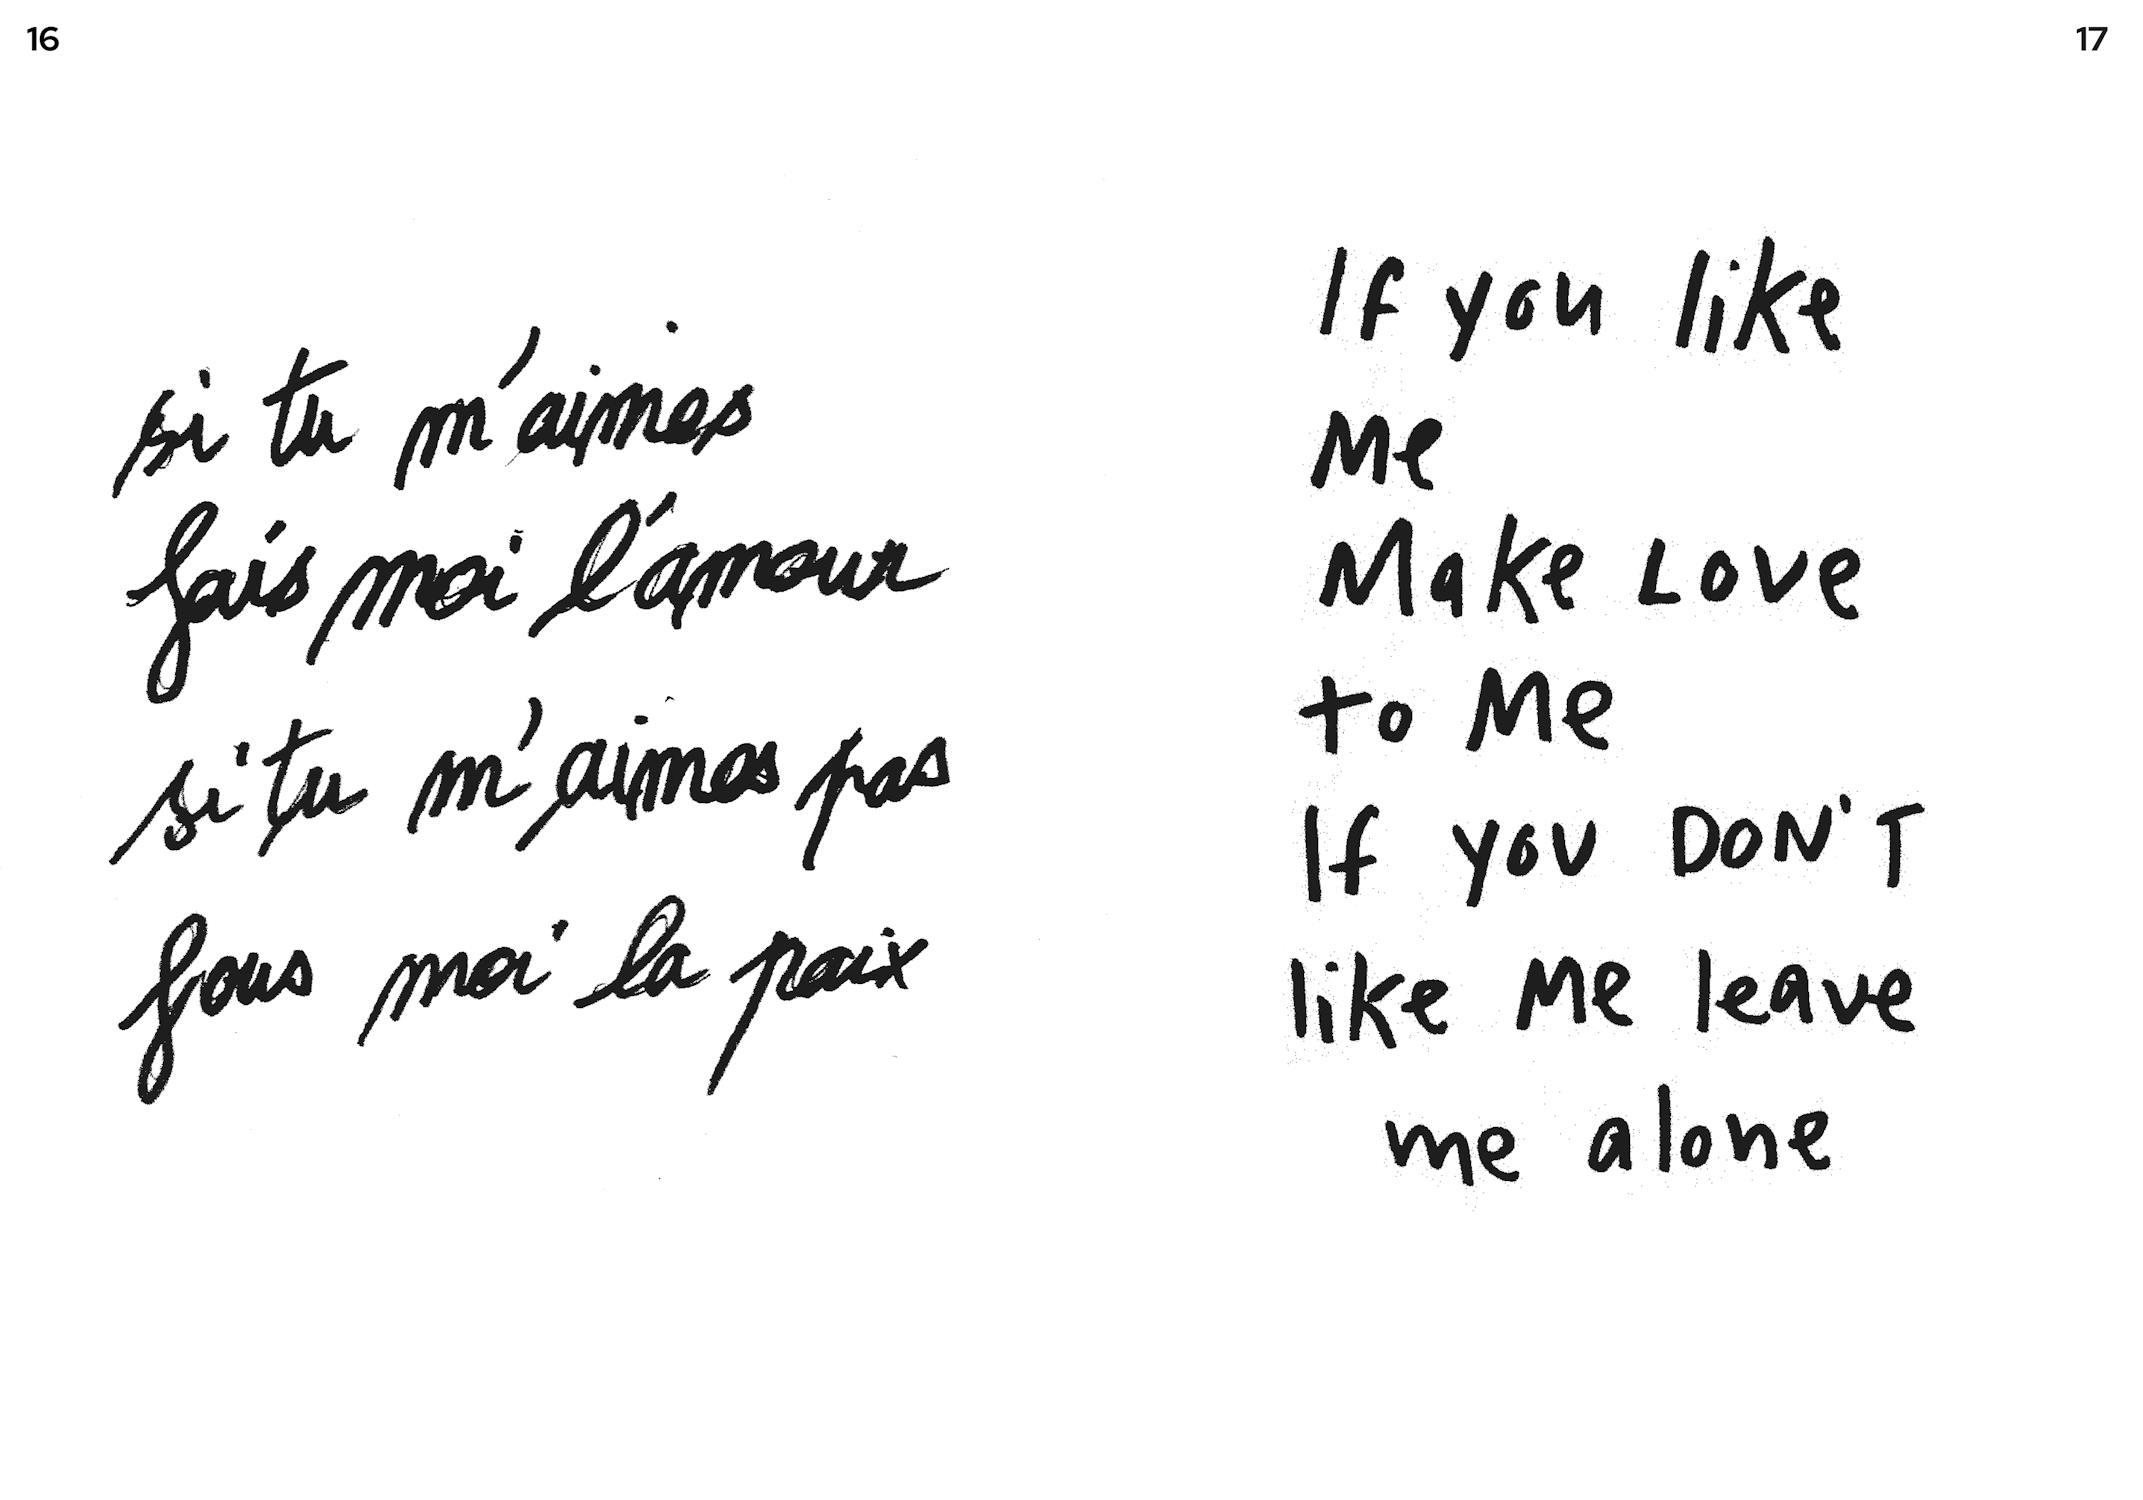 16
si tu m'aimes
fais moi l'amour
si tu m'aimes pas
fous moi la paix
17
If you like
Me
Make Love
to Me
If you DON'T
like Me leave
me alone